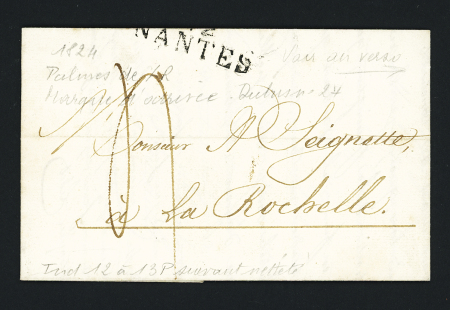 NANTES
1824
Voir au verso
Palmes de
Marque d'arrivée
24
Monsieur A Seignette,
à La Rochelle.
Ind 12 à 13 P suivant netteté